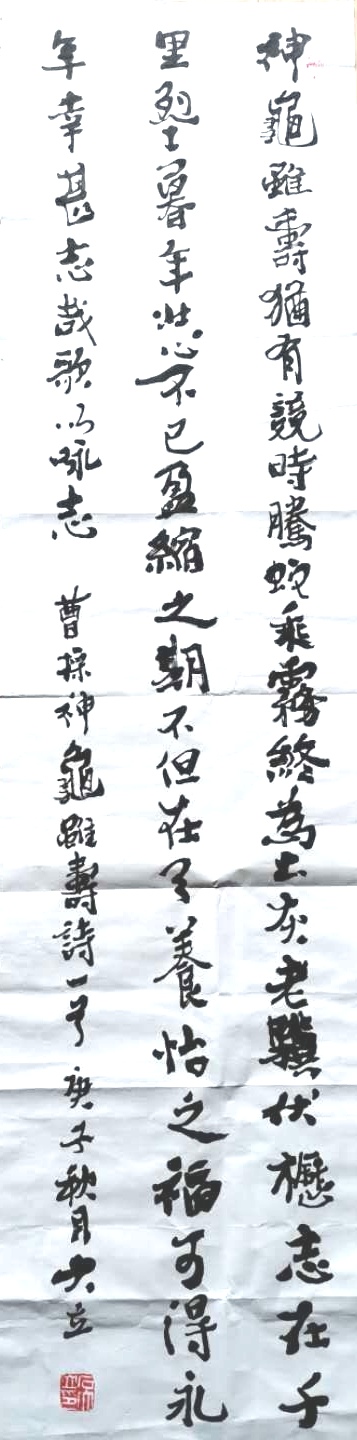 神龜雖壽猶有競時騰蛇乘霧終為土灰老驥伏櫪志在千
里烈士暮年壯心不已盈縮之期不但在天養怡之福可得永
年幸甚志哉歌以咏志 曹操神龜雖壽詩一首 庚子秋月大立